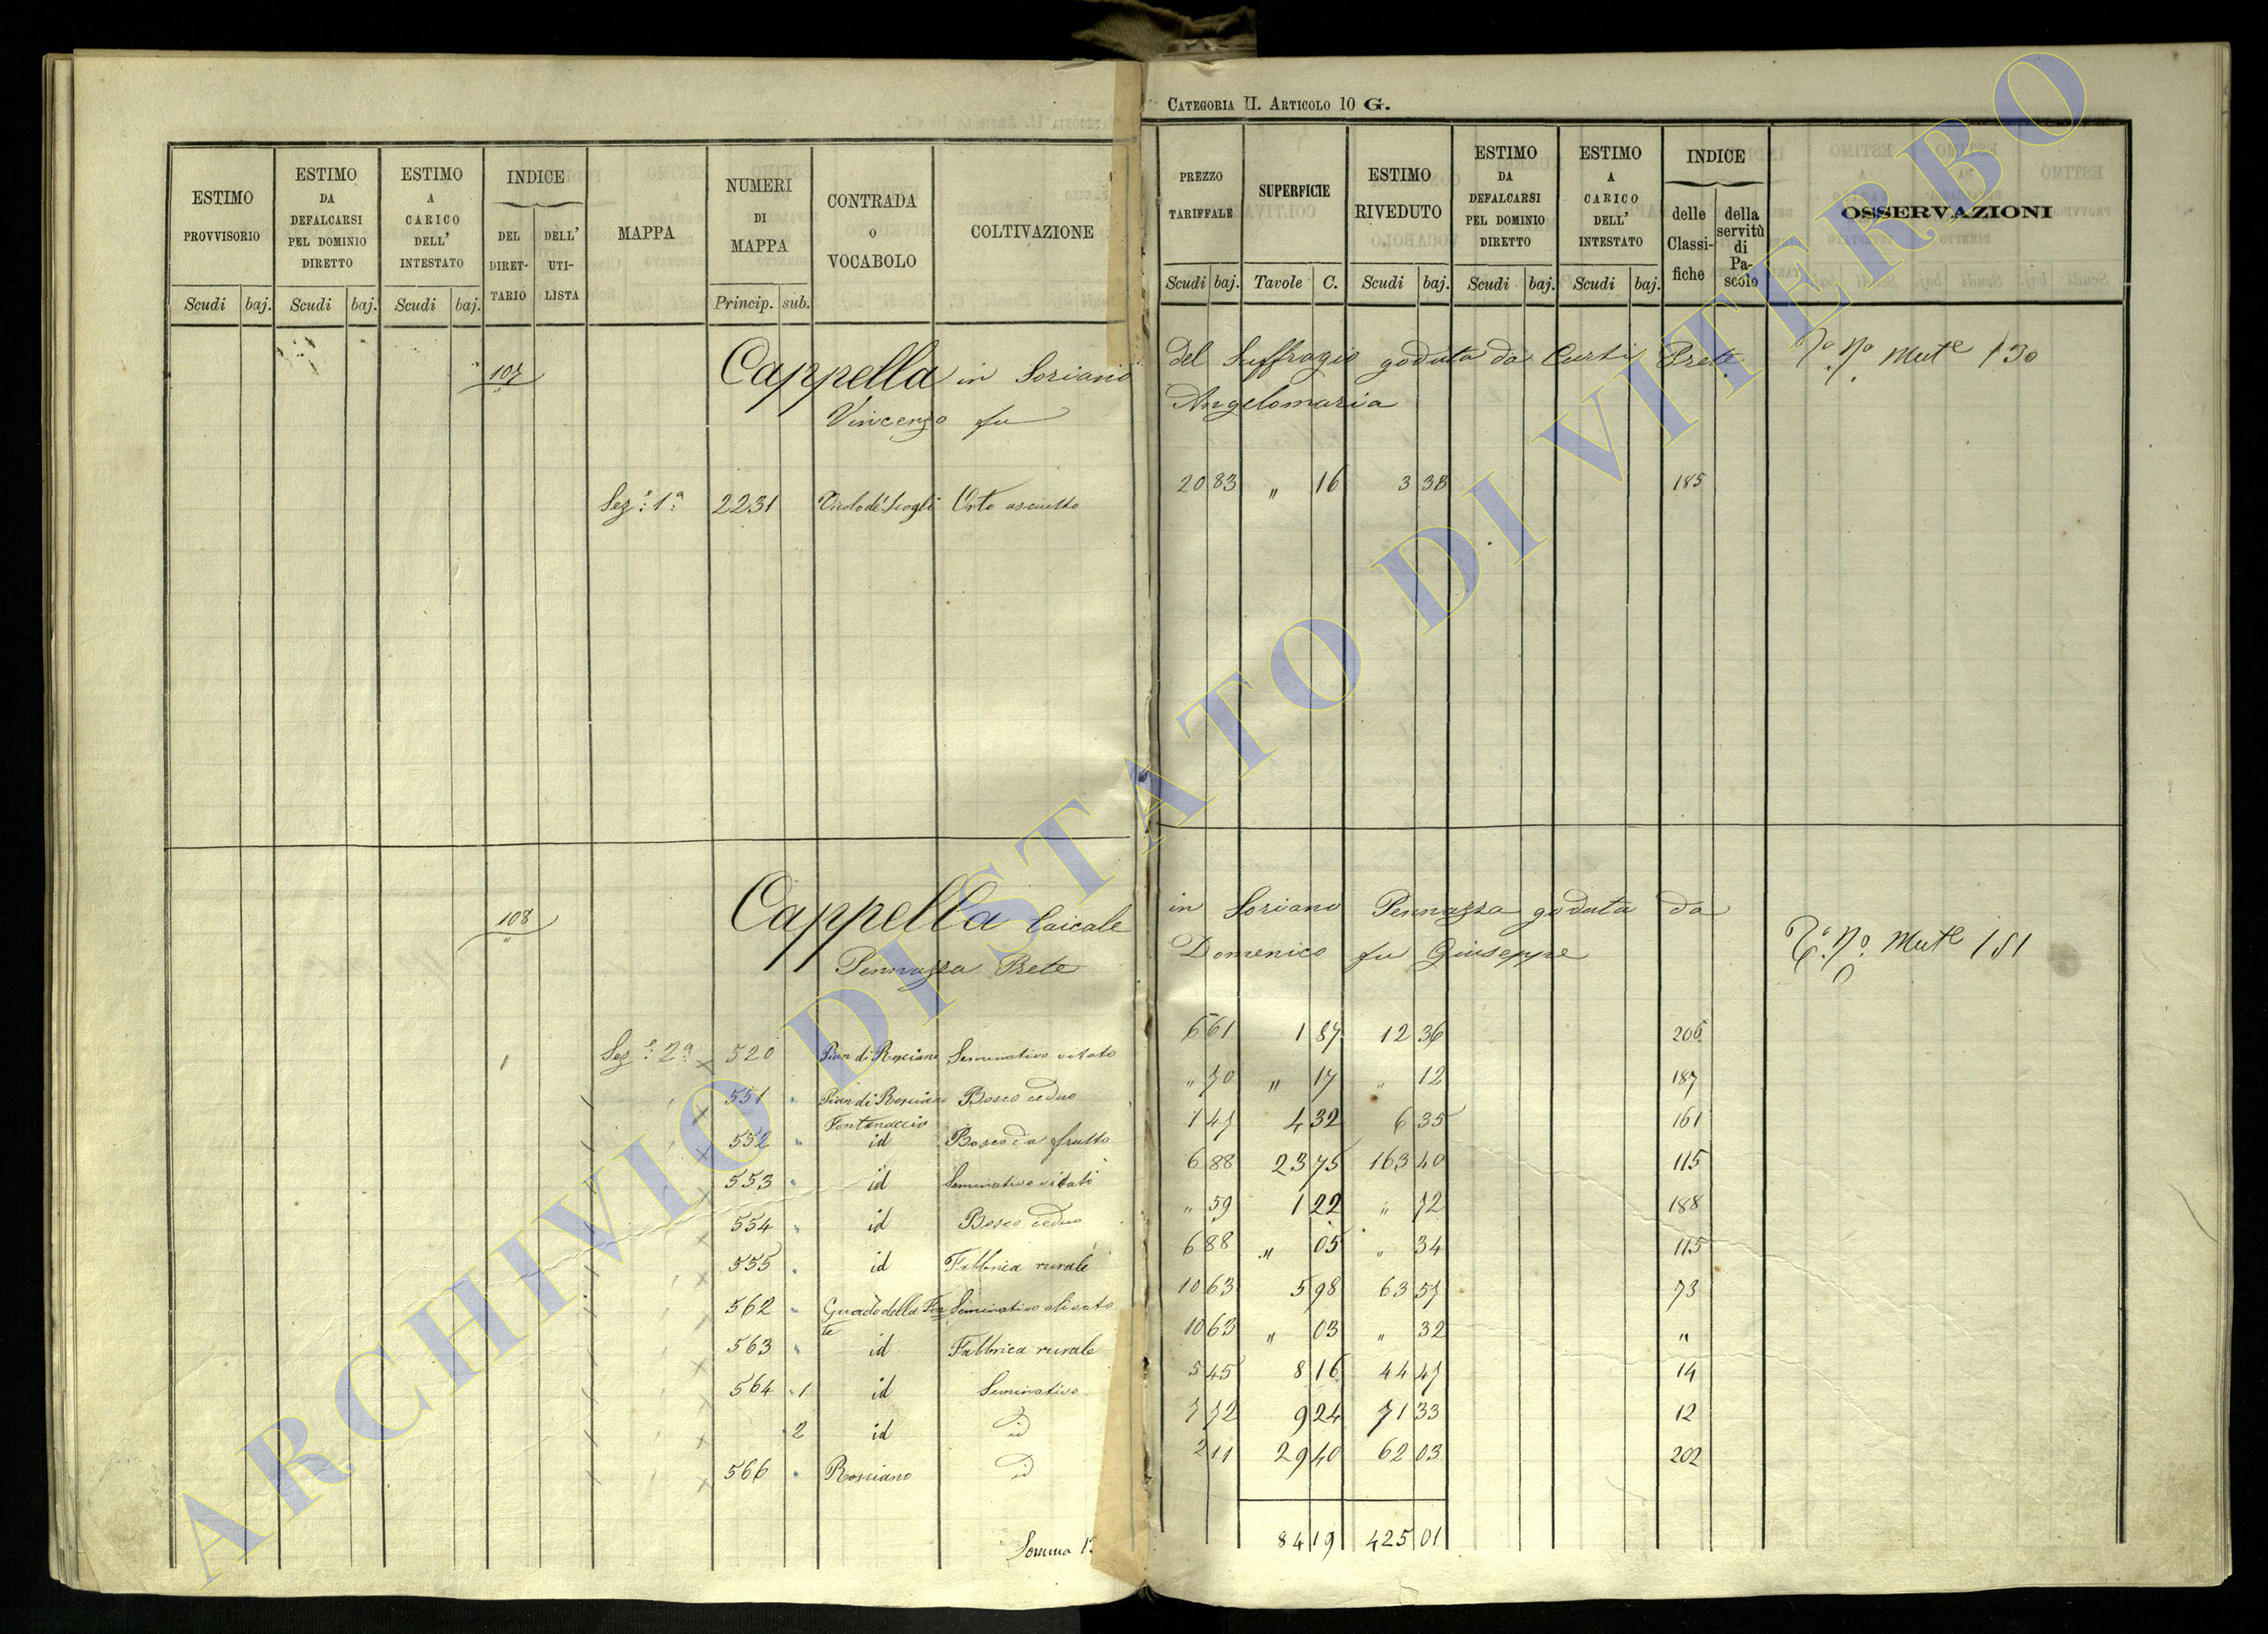 CATEGORIA II. ARTICOLO 10 G.
ESTIMO PROVVISORIO Scudi baj.
ESTIMO DA DEFALCARSI PEL DOMINIO DIRETTO Scudi baj.
ESTIMO A CARICO DELL' INTESTATO Scudi baj.
INDICE DEL DIRET-TARIO DELL' UTI-LISTA
MAPPA
NUMERI DI MAPPA Princip. sub.
CONTRADA o VOCABOLO
COLTIVAZIONE
PREZZO TARIFFALE Scudi baj.
SUPERFICIE Tavole C.
ESTIMO RIVEDUTO Scudi baj.
ESTIMO DA DEFALCARSI PEL DOMINIO DIRETTO Scudi baj.
ESTIMO A CARICO DELL' INTESTATO Scudi baj.
INDICE delle Classi-fiche della servitù di Pa-scolo
OSSERVAZIONI
107 Cappella in Soriano del Suffragio goduta da Curti Prete Mut.e 130
Vincenzo fu Angelomaria
Sez.e 1a 2231 Vicolo de' Scogli Orto asciutto 20 83 " 16 3 38 185
108 Cappella laicale in Soriano Pennazza goduta da
Pennazza Prete Domenico fu Giuseppe Mut.e 151
Sez.e 2a 520 Pian di Rosciano Seminativo vitato 6 61 1 87 12 36 206
551 Pian di Rosciano Bosco ceduo " 70 " 17 " 12 187
Fontanaccio
552 id Bosco da frutto 1 47 4 32 6 35 161
553 id Seminativo vitato 6 88 23 75 163 40 115
554 id Bosco ceduo " 59 1 22 " 72 188
555 id Fabbrica rurale 6 88 " 05 " 34 115
562 Guado della Fon Seminativo olivato 10 63 5 98 63 57 73
te
563 id Fabbrica rurale 10 63 " 03 " 32 "
564 1 id Seminativo 5 45 8 16 44 47 14
2 id id 7 72 9 24 71 33 12
566 Rosciano id 2 11 29 40 62 03 202
Somma 84 19 425 01
ARCHIVIO DI STATO DI VITERBO